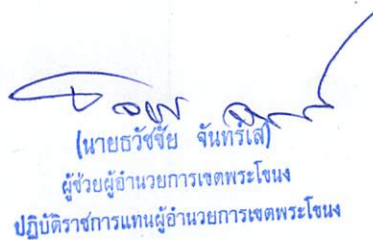 (นายธวัชชัย จันทร์เส)
ผู้ช่วยผู้อำนวยการเขตพระโขนง
ปฏิบัติราชการแทนผู้อำนวยการเขตพระโขนง